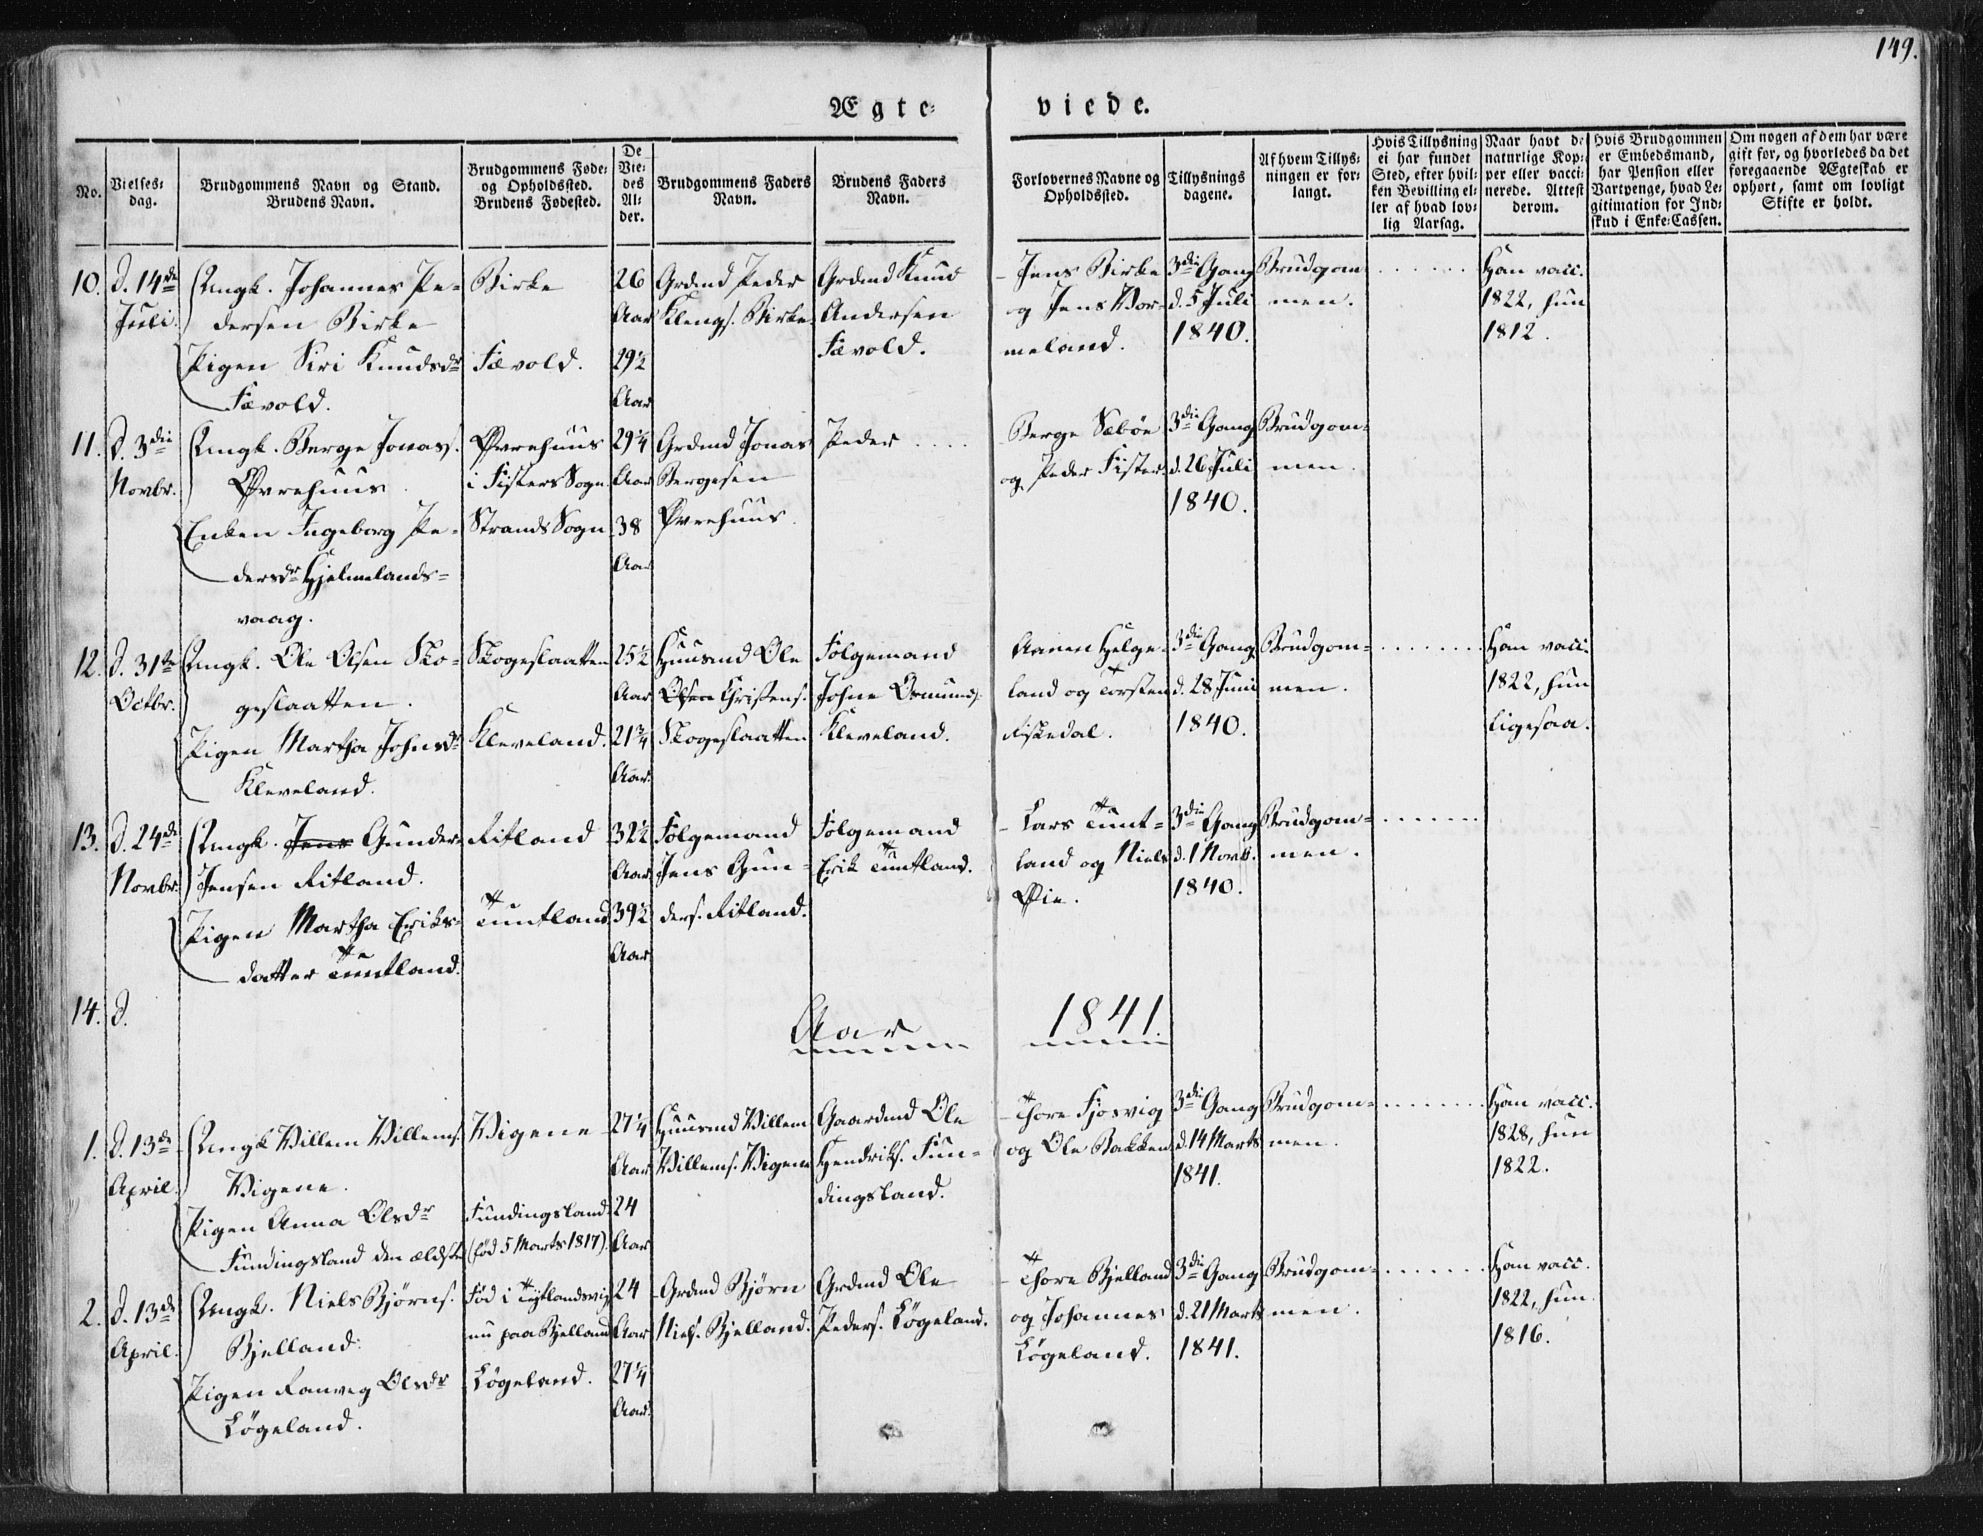 149.
Ægte- viede.
No.
Vielses-
dag.
Brudgommens Navn og Stand.
Brudens Navn.
Brudgommens Føde-
og Opholdssted.
Brudens Fødested.
De
Vie-
des
Al-
der.
Brudgommens Faders
Navn.
Brudens Faders
Navn.
Forlovernes Navne og
Opholdssted.
Tillysnings
dagene.
Af hvem Tillys-
ningen er for-
langt.
Hvis Tillysning
ei har fundet
Sted, efter hvil-
ken Bevilling el-
ler af hvad lov-
lig Aarsag.
Naar havt de
naturlige Kop-
per eller vacci-
nerede. Attest
derom.
Hvis Brudgommen
er Embedsmand,
har Pension eller
Vartpenge, hvad Le-
gitimation for Ind-
skud i Enke-Cassen.
Om nogen af dem har være
gift før, og hvorledes da det
foregaaende Ægteskab er
ophørt, samt om lovligt
Skifte er holdt.
10.
D. 14de
Juli.
Ungk. Johannes Pe-
dersen Birke
Pigen Siri Knudsdr
Fævold.
Birke
Fævold.
26
Aar
29½
Aar
Grdmd Peder
Klengs. Birke
Grdmd Knud
Andersen
Fævold.
Jens Birke
og Jens Wor-
meland.
3die Gang
d. 5 Juli
1840.
Brudgom-
men.
Han vacc.
1822, hun
1812.
11.
D. 3die
Novbr.
Ungk. Berge Jonas.
Øvrehuus
Enken Ingeborg Pe-
dersdr Hjelmelands-
vaag.
Øvrehuus
i Fisters Sogn.
Strands Sogn
29¼
Aar
38
Aar
Grdmd Jonas
Bergesen
Øvrehuus.
Peder ....
Berge Sæbøe
og Peder Fister.
3die Gang
d. 26 Juli
1840.
Brudgom-
men.
12.
D. 31te
Octbr.
Ungk. Ole Olsen Sko-
geslaatten.
Pigen Martha Johnsdr
Kleveland.
Skogeslaatten
Kleveland.
25½
Aar
21¾
Aar.
Huusmd Ole
Olsen Christens.
Skogeslaatten
Følgemand
Johne Osmunds.
Kleveland.
Aanen Helge-
land og Torsten
Riskedal.
3die Gang
d. 28 Juni
1840.
Brudgom-
men.
Han vacc.
1822, hun
ligesaa.
13.
D. 24de
Novbr.
Ungk. Jens Gunder
Jensen Ritland.
Pigen Martha Eriks-
datter Tuntland.
Ritland
Tuntland.
32½
Aar
39½
Aar
Følgemand
Jens Gun-
ders. Ritland.
Følgemand
Erik Tuntland.
Lars Tunt-
land og Niels
Øie.
3die Gang
d. 1 Novb.
1840.
Brudgom-
men.
14.
D.
Aar 1841.
1.
D. 13de
April.
Ungk Villem Villems.
Vigene.
Pigen Anna Olsdr
Fundingsland den ældste
Vigene
Fundingsland.
(født 5 Marts 1817).
27¼
Aar
24
Aar
Huusmd Villem
Villems. Vigene
Gaardmd Ole
Hendriks. Fun-
dingsland.
Thore Fjosvig
og Ole Bakken
3die Gang
d. 14 Marts
1841.
Brudgom-
men.
Han vacc.
1828, hun
1822.
2.
D. 13de
April.
Ungk. Niels Bjørns.
Bjelland.
Pigen Ranveg Olsdr
Løgeland.
Fød i Tøtlandsvig
nu paa Bjelland
Løgeland.
24
Aar
27¼
Aar.
Grdmd Bjørn
Niels. Bjelland.
Grdmd Ole
Peders. Løgeland.
Thore Bjelland
og Johannes
Løgeland.
3die Gang
d. 21 Marts
1841.
Brudgom-
men.
Han vacc.
1822, hun
1816.